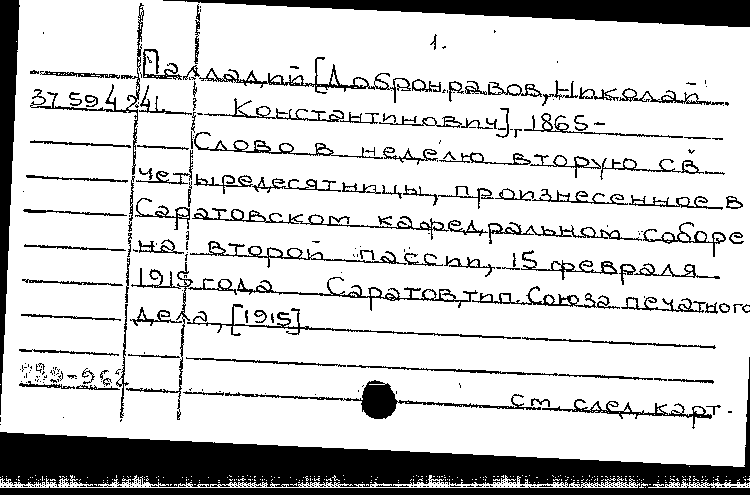 1.
Палладий [Добронравов, Николай
37.59.4.241. Константинович], 1865-
Слово в неделю вторую св.
четыредесятницы, произнесенное в
Саратовском кафедральном соборе
на второй пассии, 15 февраля
1915 года Саратов, тип. Союза печатного
дела, [1915].
999-962
см. след. карт.